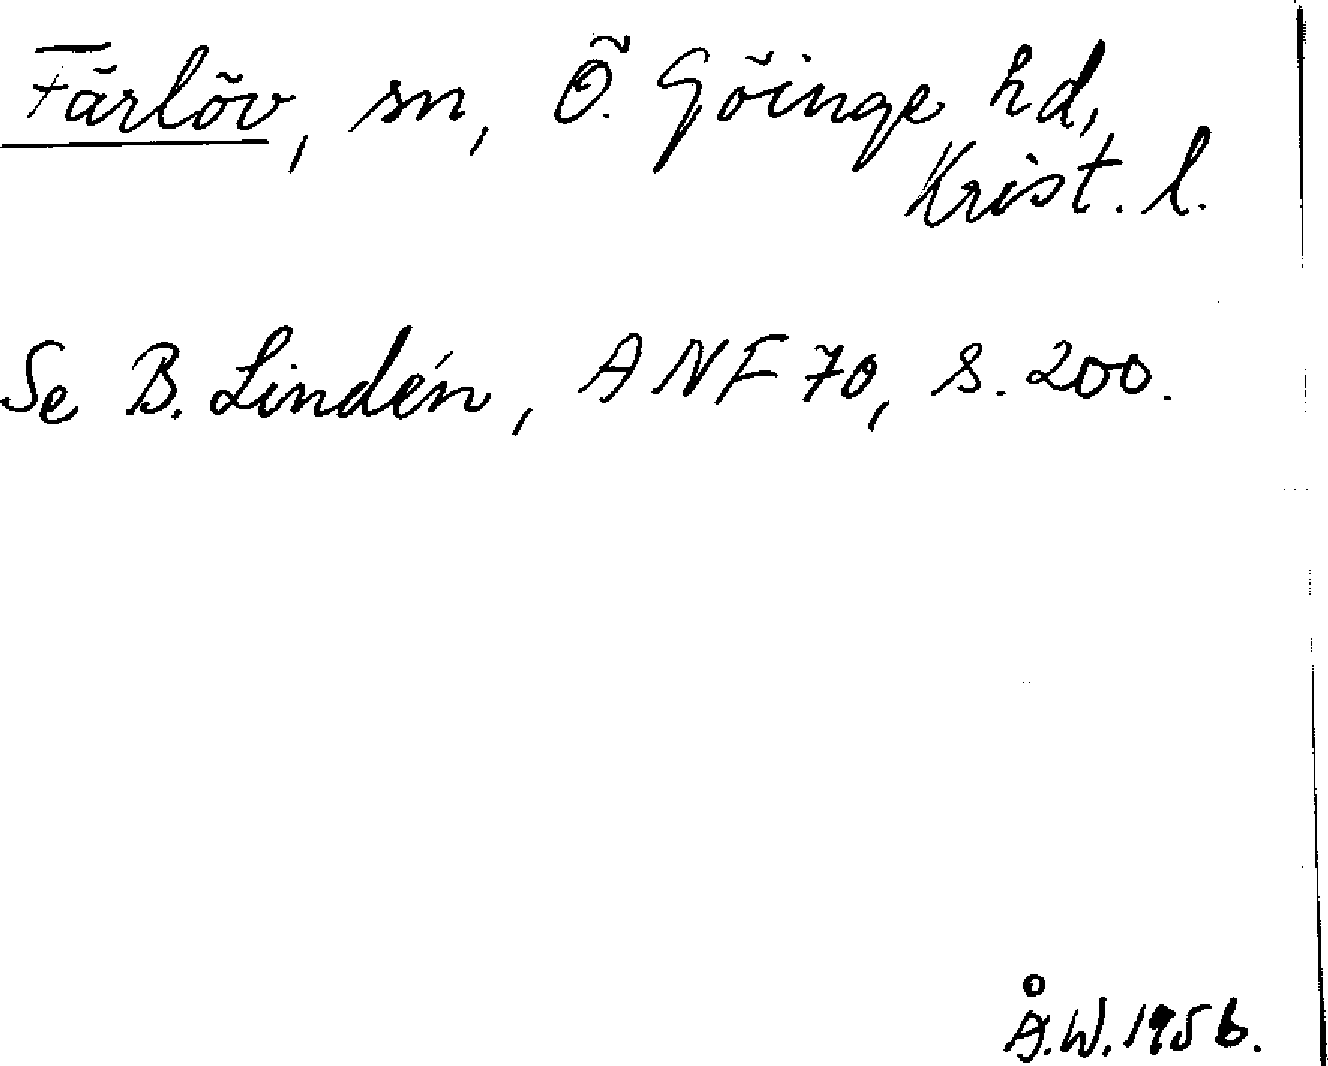 Färlöv, sn, Ö. Göinge hd,
Krist. l.
Se B. Lindén, ANF 70, s. 200.
Å.W. 1956.